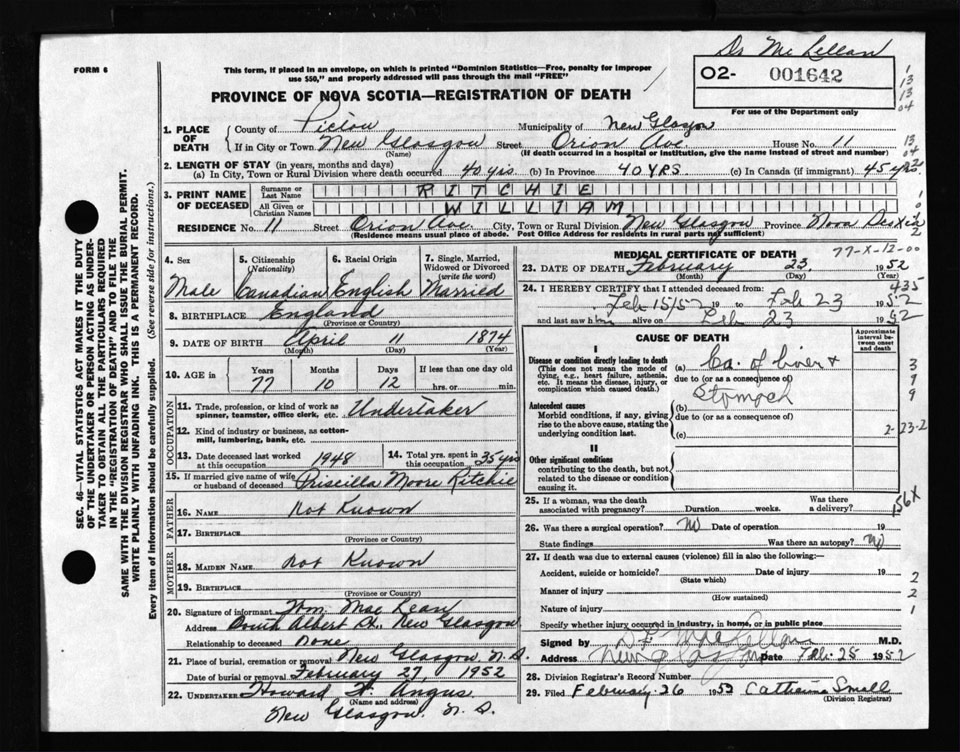 Dr McLellan
FORM 6
This form, if placed in an envelope, on which is printed "Dominion Statistics—Free, penalty for improper
use $50," and properly addressed will pass through the mail "FREE"
02- 001642
PROVINCE OF NOVA SCOTIA—REGISTRATION OF DEATH
For use of the Department only
1. PLACE OF DEATH
County of Pictou Municipality of New Glasgow
If in City or Town New Glasgow Street Orion Ave. House No. 11
(Name) (If death occurred in a hospital or institution, give the name instead of street and number)
2. LENGTH OF STAY (in years, months and days)
(a) In City, Town or Rural Division where death occurred 40 yrs. (b) In Province 40 YRS. (c) In Canada (if immigrant) 45 yrs.
3. PRINT NAME OF DECEASED
Surname or Last Name RITCHIE
All Given or Christian Names WILLIAM
RESIDENCE No. 11 Street Orion Ave. City, Town or Rural Division New Glasgow Province Nova Scotia
(Residence means usual place of abode. Post Office Address for residents in rural parts not sufficient)
4. Sex
5. Citizenship (Nationality)
6. Racial Origin
7. Single, Married, Widowed or Divorced (write the word)
Male Canadian English Married
8. BIRTHPLACE England
(Province or Country)
9. DATE OF BIRTH April 11 1874
(Month) (Day) (Year)
10. AGE in Years Months Days If less than one day old
77 10 12 hrs. or min.
OCCUPATION
11. Trade, profession, or kind of work as
spinner, teamster, office clerk, etc. Undertaker
12. Kind of industry or business, as cotton-
mill, lumbering, bank, etc.
13. Date deceased last worked
at this occupation 1948
14. Total yrs. spent in
this occupation 35 yrs
15. If married give name of wife
or husband of deceased Priscilla Moore Ritchie
FATHER
16. NAME Not Known
17. BIRTHPLACE
(Province or Country)
MOTHER
18. MAIDEN NAME Not Known
19. BIRTHPLACE
(Province or Country)
20. Signature of informant Wm. Mac Lean
Address South Albert St., New Glasgow
Relationship to deceased None
21. Place of burial, cremation or removal New Glasgow, N.S.
Date of burial or removal February 27, 1952
22. UNDERTAKER Howard H. Angus
(Name and address)
New Glasgow. N.S.
MEDICAL CERTIFICATE OF DEATH
77-X-12-00
23. DATE OF DEATH February 23 1952
(Month) (Day)
24. I HEREBY CERTIFY that I attended deceased from: 435
Feb 15/52 19 to Feb 23 1952
and last saw him alive on Feb 23 1952
CAUSE OF DEATH
Approximate interval between onset and death
I
Disease or condition directly leading to death
(This does not mean the mode of
dying, e.g., heart failure, asthenia,
etc. It means the disease, injury, or
complication which caused death.)
(a) Ca. of liver +
due to (or as a consequence of)
Stomach
Antecedent causes
Morbid conditions, if any, giving
rise to the above cause, stating the
underlying condition last.
(b)
due to (or as a consequence of)
(c)
2-23-2
II
Other significant conditions
contributing to the death, but not
related to the disease or condition
causing it.
25. If a woman, was the death
associated with pregnancy? Duration weeks. Was there
a delivery?
156X
26. Was there a surgical operation? No Date of operation 19
State findings Was there an autopsy? No
27. If death was due to external causes (violence) fill in also the following:—
Accident, suicide or homicide? Date of injury 19
(State which)
Manner of injury
(How sustained)
Nature of injury
Specify whether injury occurred in industry, in home, or in public place
Signed by D F MacLellan M.D.
Address New Glasgow Date Feb. 25 1952
28. Division Registrar's Record Number
29. Filed February 26 1952 Catherine Small
(Division Registrar)
SEC. 46—VITAL STATISTICS ACT MAKES IT THE DUTY
OF THE UNDERTAKER OR PERSON ACTING AS UNDER-
TAKER TO OBTAIN ALL THE PARTICULARS REQUIRED
IN THE "REGISTRATION OF DEATH" AND TO FILE THE
SAME WITH THE DIVISION REGISTRAR WHO SHALL ISSUE THE BURIAL PERMIT.
WRITE PLAINLY WITH UNFADING INK. THIS IS A PERMANENT RECORD.
Every item of information should be carefully supplied. (See reverse side for instructions.)